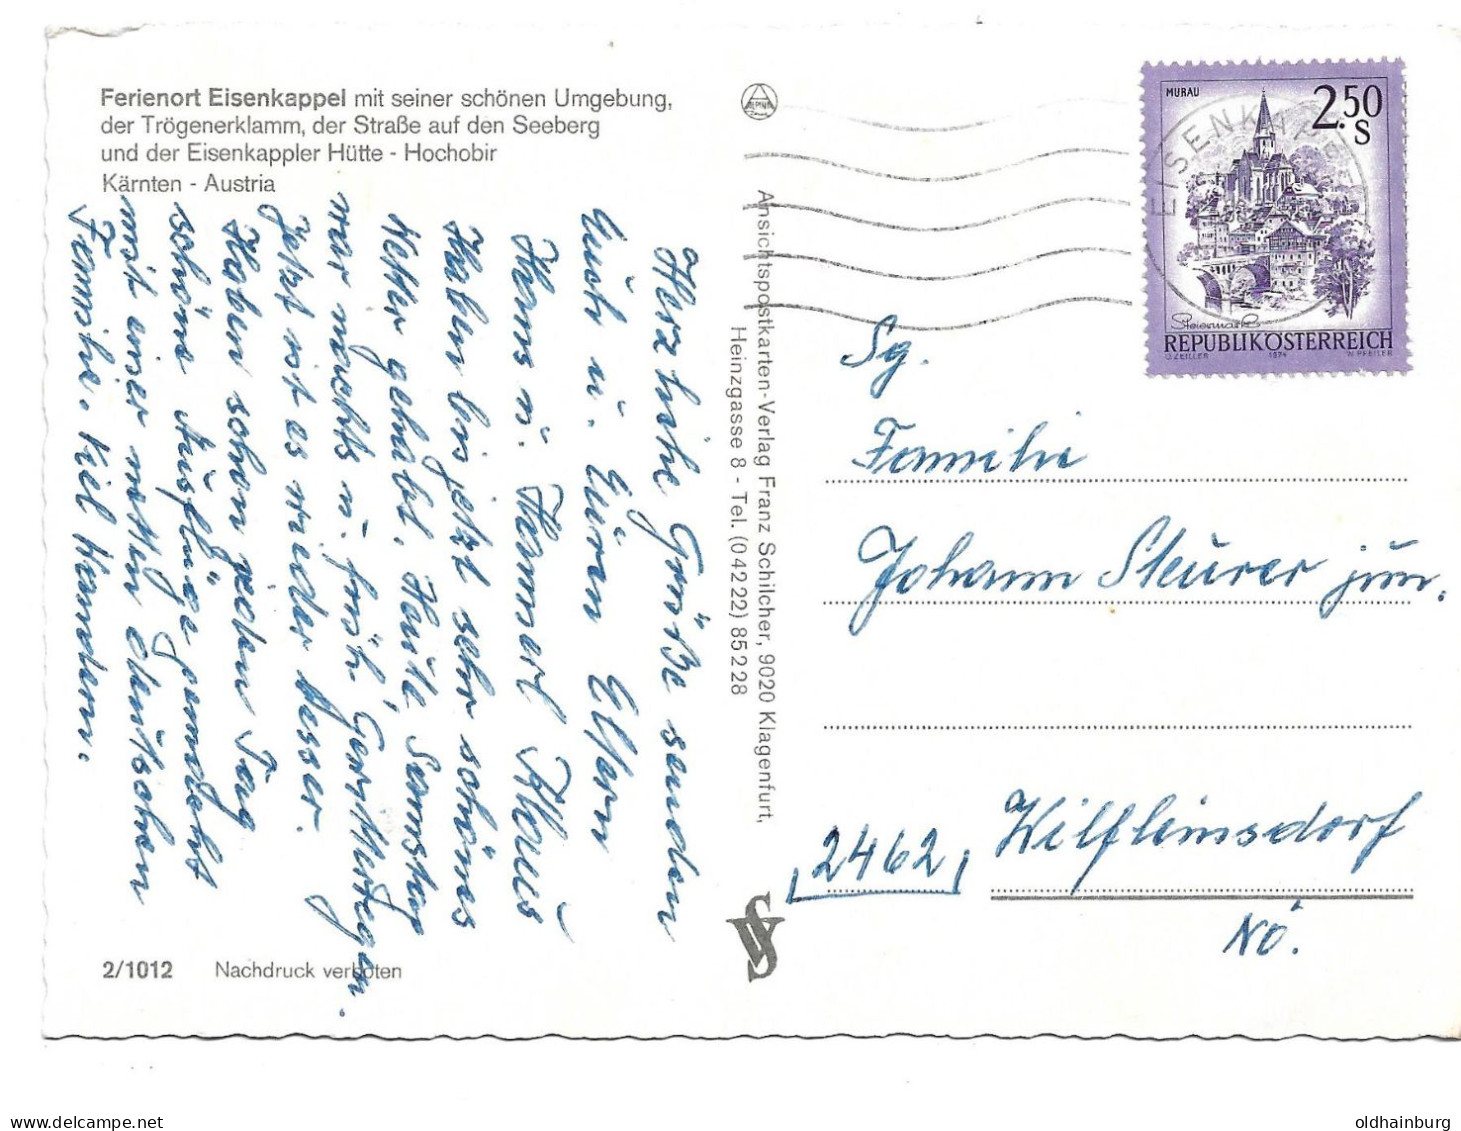 Ferienort Eisenkappel mit seiner schönen Umgebung,
der Trögenerklamm, der Straße auf den Seeberg
und der Eisenkappler Hütte - Hochobir
Kärnten - Austria
Herzliche Grüße senden
Euch u. Euren Eltern
Hans u. Hannerl
Haben bis jetzt sehr schönes
Wetter gehabt. Heute, Samstag
war nachts u. früh, Gewitterregen.
Jetzt ist es wieder besser.
Haben schon jeden Tag
schöne Ausflüge gemacht
mit einer netten deutschen
Familie. Viel Wandern.
2/1012 Nachdruck verboten
Ansichtspostkarten-Verlag Franz Schilcher, 9020 Klagenfurt,
Heinzgasse 8 - Tel. (0 42 22) 85 2 28
MURAU
2.50
S
EISENKAPPEL
Steiermark
REPUBLIK ÖSTERREICH
O. ZEILLER 1974 W. PFEILER
Sg.
Familie
Johann Steurer jun.
2462 Wilfleinsdorf
NÖ.
oldhainburg
delcampe.net